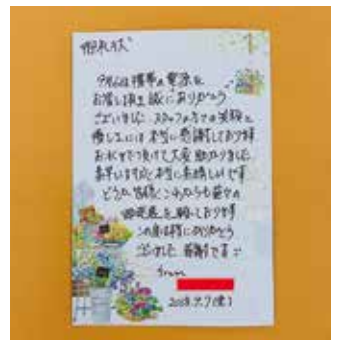 御礼状
9月6日携帯の電源を
お貸し頂き誠にありがとう
ございました スタッフの方々の笑顔と
優しさには本当に感謝しております
お水までつけて大変助かりました
本当に素晴しいです
どうか皆様これからも益々の
ご発展を願っております
この度は本当にありがとう
ございました 感謝です
from
2018.9.7(金)